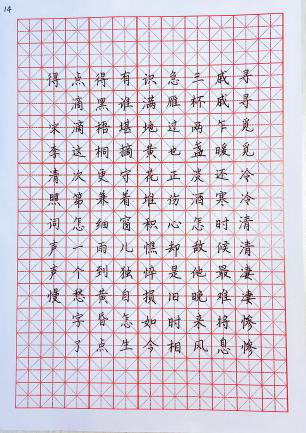 14
寻寻觅觅冷冷清清凄凄惨惨
戚戚乍暖还寒时候最难将息
三杯两盏淡酒怎敌他晚来风
急雁过也正伤心却是旧时相
识满地黄花堆积憔悴损如今
有谁堪摘守着窗儿独自怎生
得黑梧桐更兼细雨到黄昏点
点滴滴这次第怎一个愁字了
得 宋李清照词声声慢